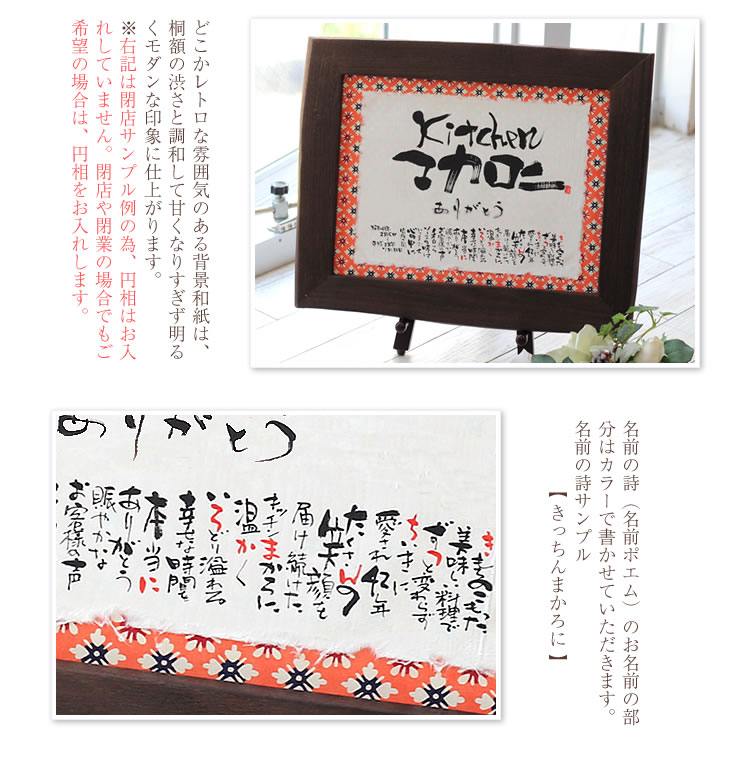 どこかレトロな雰囲気のある背景和紙は、
桐額の渋さと調和して甘くなりすぎず明る
くモダンな印象に仕上がります。
※右記は閉店サンプル例の為、円相はお入
れしていません。閉店や閉業の場合でもご
希望の場合は、円相をお入れします。
Kitchen
マカロニ
ありがとう
名前の詩（名前ポエム）のお名前の部
分はカラーで書かせていただきます。
名前の詩サンプル
【きっちんまかろに】
ありがとう
美味しい料理で
ずっと変わらず
ちいきに
愛され42年
たくさんの
笑顔を
届け続けた
キッチンまかろに
温かく
いろどり溢れる
幸せな時間を
本当に
ありがとう
賑やかな
お客様の声